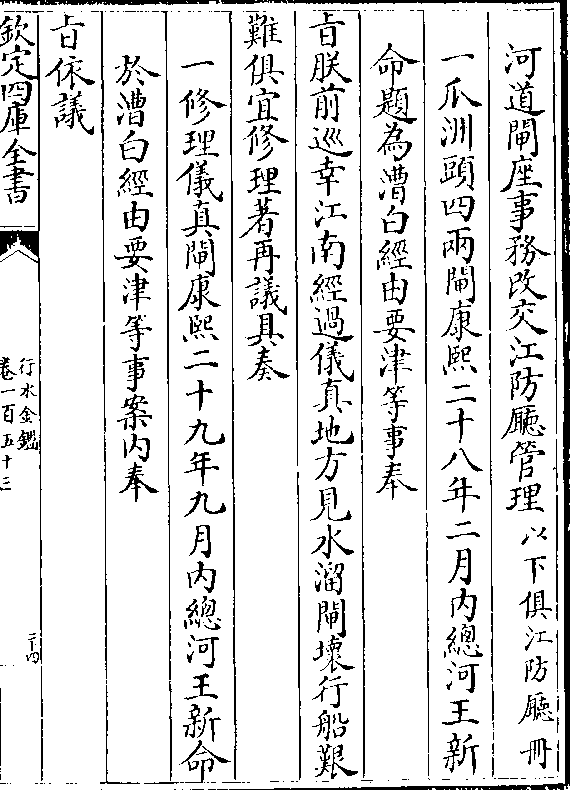 河道閘座事務改交江防廳管理以下俱江防廳冊
一瓜洲頭四兩閘康熙二十八年二月內總河王新
命題為漕白經由要津等事奉
㫖朕前巡幸江南經過儀真地方見水溜閘壞行船艱
難俱宜修理著再議具奏
一修理儀真閘康熙二十九年九月內總河王新命
於漕白經由要津等事案內奉
㫖依議
欽定四庫全書
行水金鑑
卷一百五十三
二十四